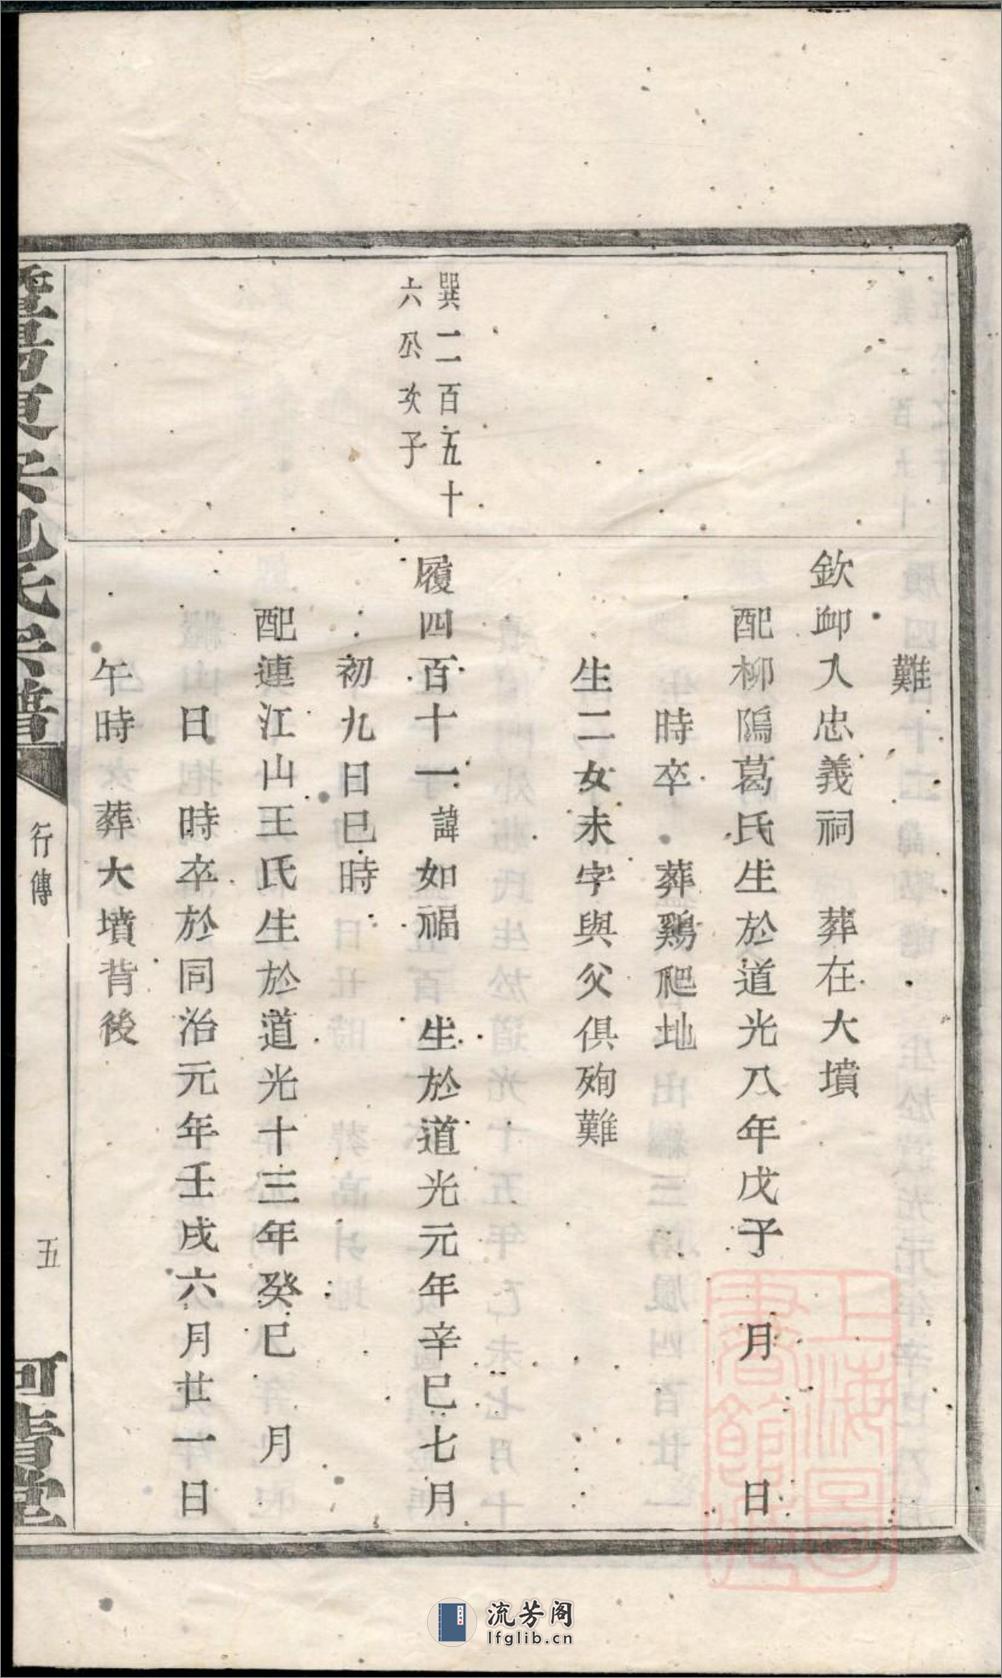 難
欽卹入忠義祠　葬在大墳
配柳隖葛氏生於道光八年戊子　月　日
時卒　葬鷄爬地
生二女未字與父俱殉難
巽二百五十
六公次子
履四百十一諱如福　生於道光元年辛巳七月
初九日巳時
配連江山王氏生於道光十三年癸巳　月
日　時卒於同治元年壬戌六月廿一日
午時　葬大墳背後
包氏宗譜
行傳
五
河清堂
上海圖
書館藏
流芳阁
lfglib.cn